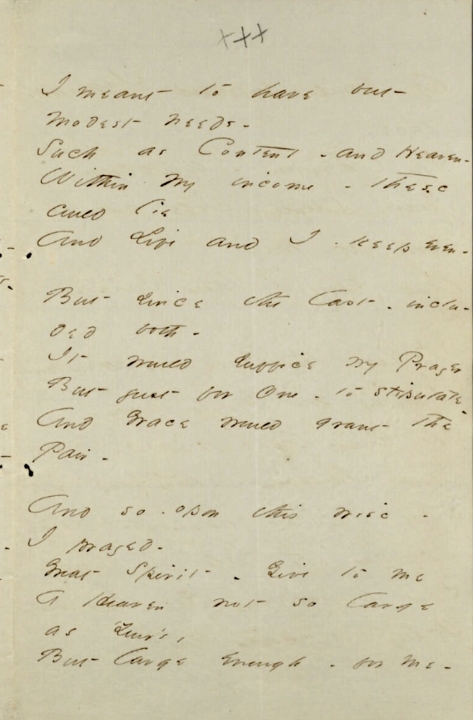 xxx
I meant to have but
modest needs -
Such as Content - and Heaven -
Within my income - these
could lie
And Life and I - keep even -
But since the last - inclu-
ded both -
It would suffice my Prayer
But just for One - to stipulate -
And Grace would grant the
Pair -
And so - upon this wise -
I prayed -
Great Spirit - Give to me
A Heaven not so large
as Your's,
But large enough - for me -